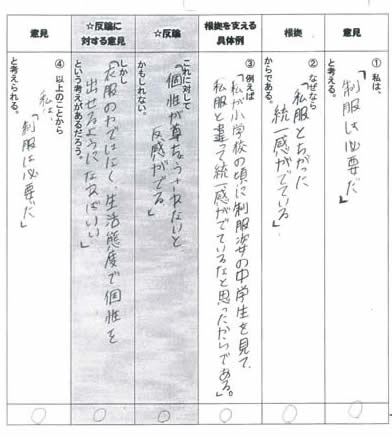 意見
① 私は、
「制服は必要だ」
と考える。
根拠
② なぜなら
「私服とちがった
統一感がでている」
からである。
根拠を支える
具体例
③ 例えば
「私が小学校の頃に制服姿の中学生を見て、
私服と違って統一感がでているなと思ったからである。」
☆反論
これに対して
「個性が尊ちょうされないと
反感がでる」
かもしれない。
☆反論に
対する意見
しかし
「衣服のみではなく、生活態度で個性を
出せるようになればいい」
という考えがあるだろう。
意見
④ 以上のことから
私は、
「制服は必要だ」
と考えられる。